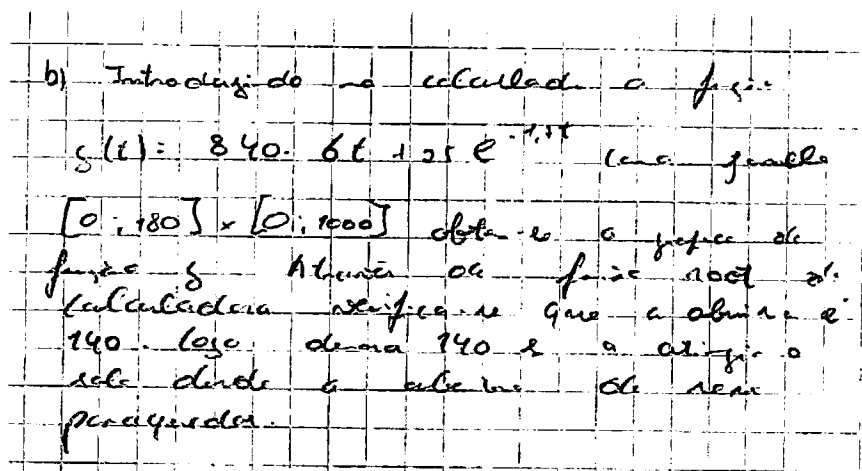 b) Introduzindo na calculadora a função
g(t): 840 - 6t + 25 e^-1,7t com janela
[0 ; 180] x [0 ; 1000] obtem-se o grafico da
função g Através da função root da
calculadora verifica-se que a abcissa é
140. Logo demora 140 s a atingir o
solo desde a abertura de seu
paraquedas.